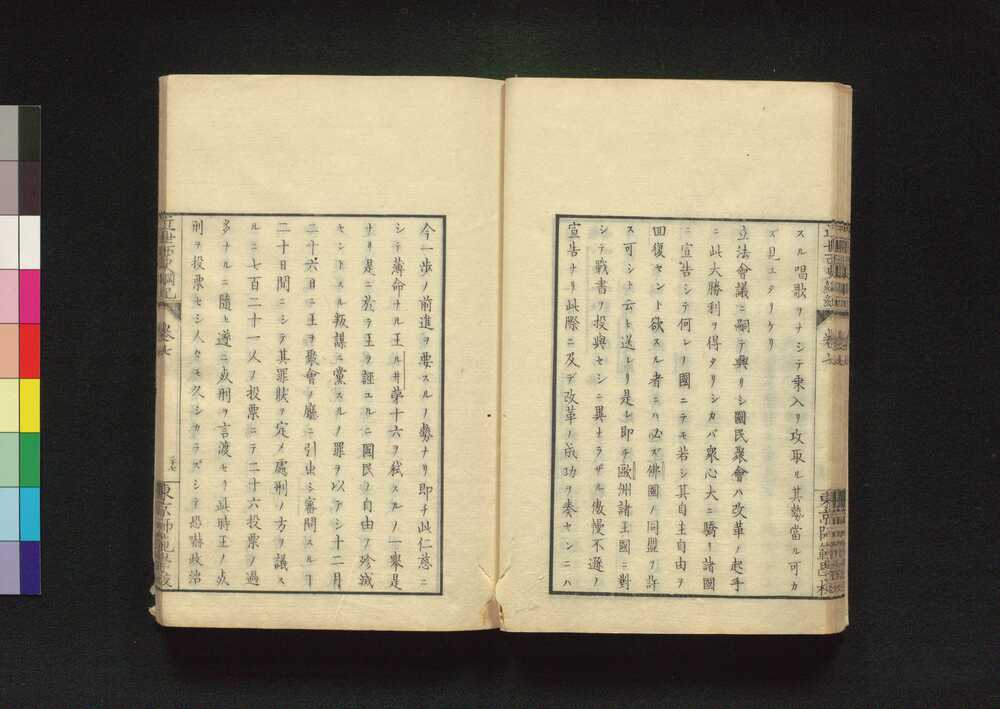 スル唱歌ヲナシテ乗入リ攻取ル其勢當ル可カ
ズ見エタリケリ
立法會議ニ嗣テ興リシ國民聚會ハ改革ノ起手
ニ此大勝利ヲ得タリシカバ衆心大ニ驕リ諸國
ニ宣告シテ何レノ國ニテモ若シ其自主自由ヲ
回復セント欲スル者ニハ必ズ佛國ノ同盟ヲ許
ス可シト云ヒ送レリ是レ即チ歐洲諸王國ニ對
シテ戰書ヲ投與セシニ異ナラザル傲慢不遜ノ
宣告ナリ此際ニ及デ改革ノ成功ヲ奏センニハ
今一歩ノ前進ヲ要スルノ勢ナリ即チ此仁慈ニ
シテ薄命ナル王ル井第十六ヲ弑スルノ一擧是
ナリ是ニ於テ王ヲ誣ユルニ國民ノ自由ヲ殄滅
セントスル叛謀ニ黨スルノ罪ヲ以テシ十二月
二十六日ニ王ヲ聚會ノ廳ニ引出シ審問スルヿ
二十日間ニシテ其罪狀ヲ定メ處刑ノ方ヲ議ス
ルニ七百二十一人ノ投票ニテ二十六投票ノ過
多ナルニ隨ヒ遂ニ死刑ヲ言渡セリ此時王ノ死
刑ヲ投票セシ人々モ久シカラズシテ恐嚇政治
近世西史綱紀
卷七
二十七
東京師範學校